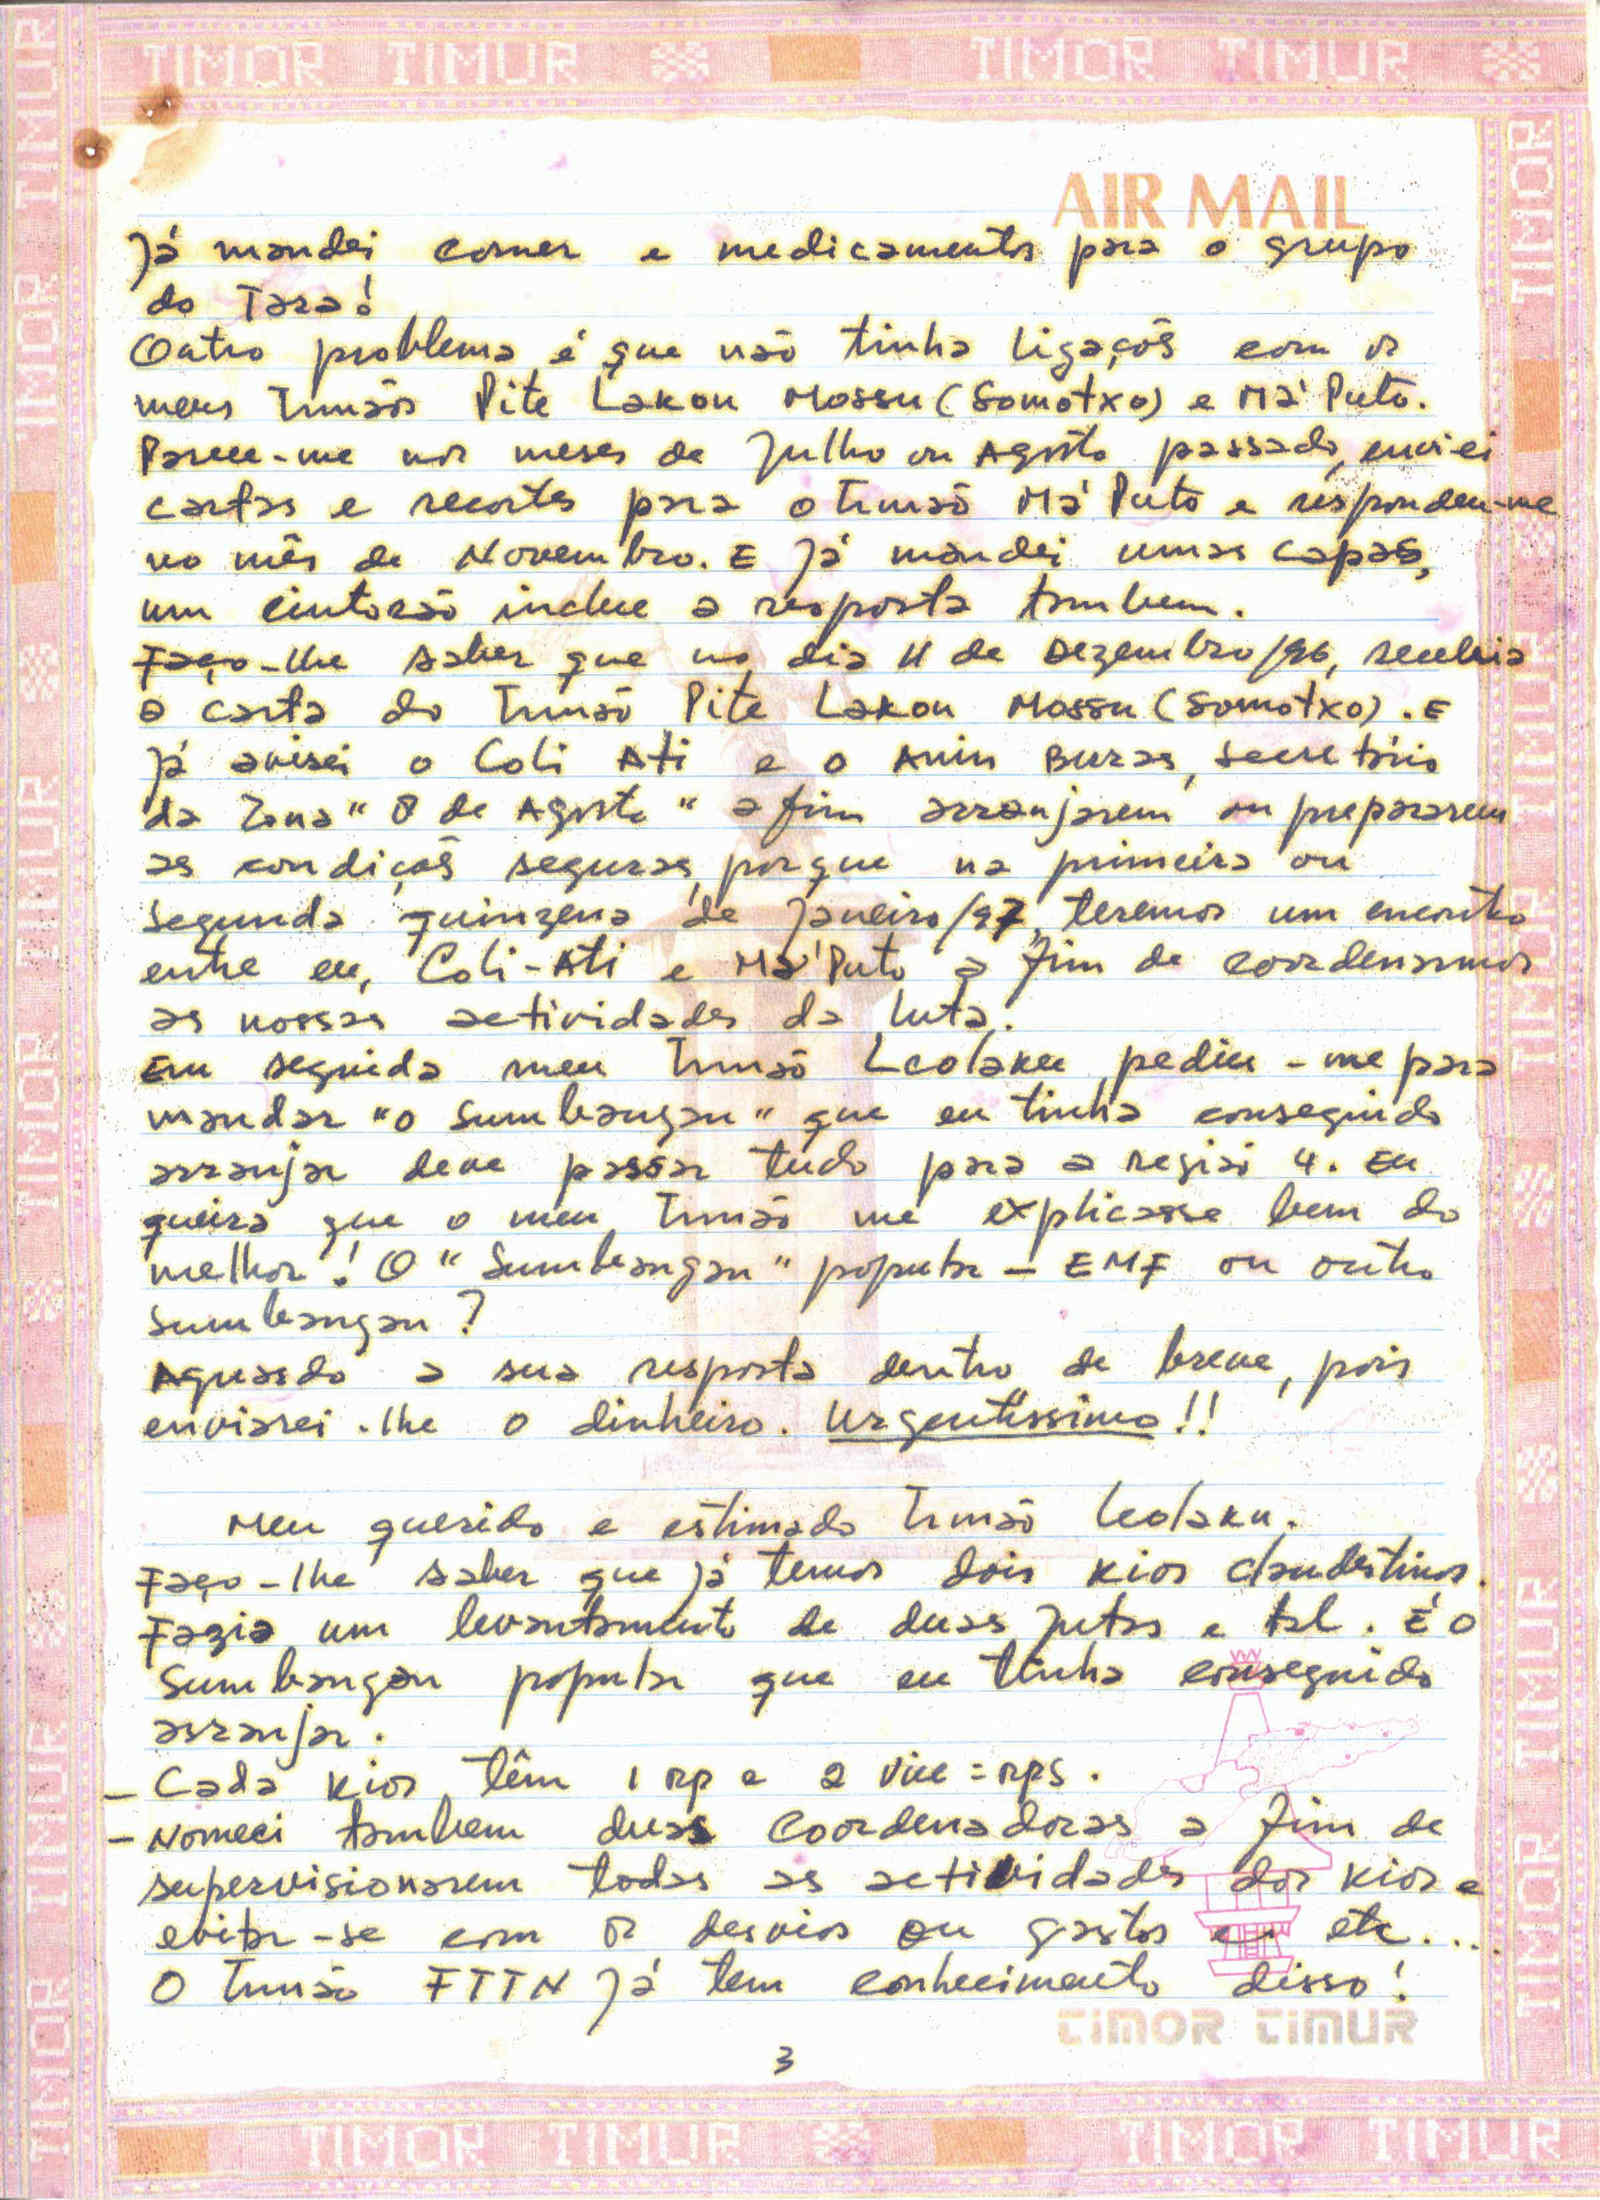 TIMOR TIMUR TIMOR TIMUR
AIR MAIL
Já mandei comer e medicamentos para o grupo
do Tara!
Outro problema é que não tinha ligaçõs com os
meus Irmãos Pite Lakon Mossu (Somotxo) e Má'Puto.
Parece-me nos meses de Julho ou Agosto passado, enviei
cartas e recortes para o Irmão Má'Puto e respondeu-me
no mês de Novembro. E já mandei umas capas,
um cinturão inclue a resposta tambem.
Faço-lhe saber que no dia 11 de Dezembro/96, recebia
a carta do Irmão Pite Lakon Mossu (Somotxo). E
já avisei o Coli Ati e o Anin Buras, secretário
da Zona "8 de Agosto" a fim arranjarem ou prepararem
as condiçõs seguras, porque na primeira ou
segunda quinzena de Janeiro/97, teremos um encontro
entre eu, Coli-Ati e Má'Puto a fim de coordenarmos
as nossas actividades da luta.
Em seguida meu Irmão Leolaku, pediu-me para
mandar "o Sumbangan" que eu tinha conseguido
arranjar deve passar tudo para a região 4. Eu
queira que o meu Irmão me explicasse bem do
melhor! O "Sumbangan" popular - EMF ou outro
sumbangan?
Aguardo a sua resposta dentro de breve, pois
enviarei-lhe o dinheiro. Urgentissimo!!
Meu querido e estimado Irmão Leolaku.
Faço-lhe saber que já temos dois kios clandestinos.
Fazia um levantamento de duas jutas e tal. É o
Sumbangan popular que eu tinha conseguido
arranjar.
- Cada kios têm 1 rp e 2 vice=rps.
- Nomeei tambem duas Coordenadoras a fim de
supervisionarem todas as actividades dos kios e
evitar-se com os desvios ou gastos etc....
O Irmão FTTN já tem conhecimento disso!
TIMOR TIMUR
3
TIMOR TIMUR TIMOR TIMUR